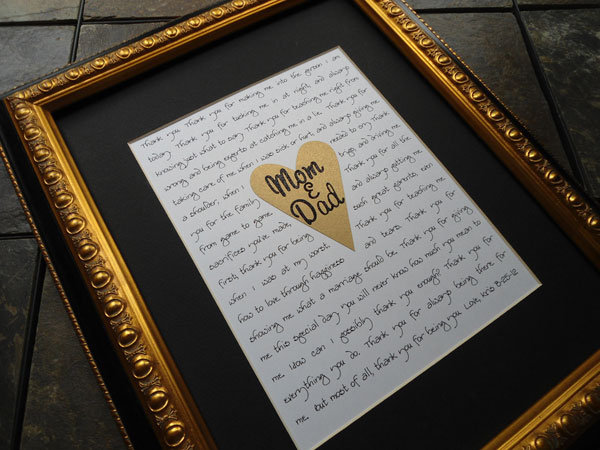 Thank you. Thank you for making me into the groom I am
today. Thank you for tucking me in at night and always
knowing just what to say. Thank you for teaching me right from
wrong and being experts at catching me in a lie. Thank you for
taking care of me when I was sick or hurt, and always giving me
a shoulder, when I needed to cry. Thank
you for the family trips, and driving me
from game to game. Thank you for all the
sacrifices you've made, and always putting me
first, thank you for being such great parents, even
when I was at my worst. Thank you for teaching me
how to love through happiness and tears. Thank you for
showing me what a marriage should be. Thank you for giving
me this special day, you will never know how much you mean to
me. How can I possibly thank you enough? Thank you for
everything you do. Thank you for always being there for
me. But most of all, thank you for being you. Love, Kris 8-25-12
Mom
&
Dad